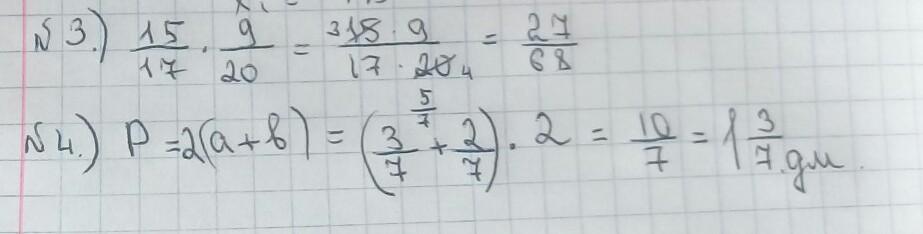 N 3.) 15/17 · 9/20 = ³15 · 9/17 · 20₄ = 27/68
N 4.) P = 2(a + b) = (3/7 + 2/7) 5/7 · 2 = 10/7 = 1 3/7 дм.